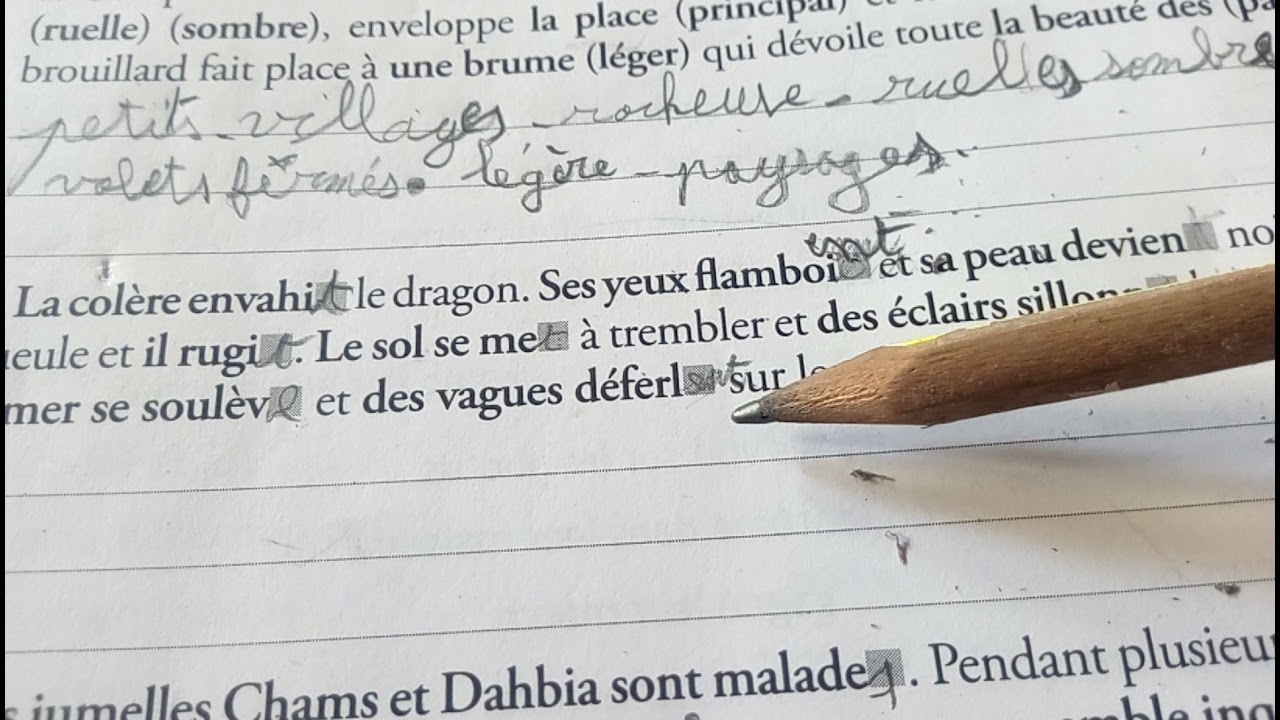 (ruelle) (sombre), enveloppe la place (principal)
brouillard fait place à une brume (léger) qui dévoile toute la beauté des
petits - villages - rocheuse - ruelles sombre
volets fermés. légère - paysages.
La colère envahit le dragon. Ses yeux flamboi et sa peau devient
et il rugit. Le sol se met à trembler et des éclairs
mer se soulève et des vagues déferl sur
jumelles Chams et Dahbia sont malades. Pendant